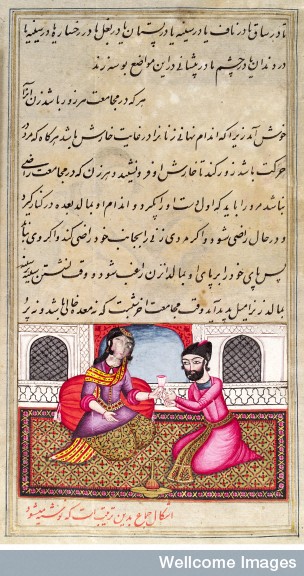 یا در ساق یا در ناف یا در سینه یا در پستان یا در بغل یا در رخسار یا در سینه یا
در دندان یا در چشم یا در پیشانی درین مواضع بوسه زند
هر که در مجامعت مرز زور باشد زن را آن
خوش آید زیرا که اندام نهانی زنانرا در غایت خارش باشد هر گاه که مرد در
حرکت باشد زور کند تا خارش او فرو نشیند و هر زن که در مجامعت راضی
نباشد مرد را باید که اول دست او را گیرد و اندام او بمالد بعده در کنار گیرد
و در حال راضی شود و اگر مردی زنی را بجانب خود راضی کند
پس پای خود را بر پای او بمالد آن زن راغب شود و وقت نشستن سینه
بمالد زن را میل پدید آید وقت مجامعت آنوقتست که نه معده خالی باشد و نه پر
اشکال جماع بدین ترتیب است که نوشته میشود
Wellcome Images